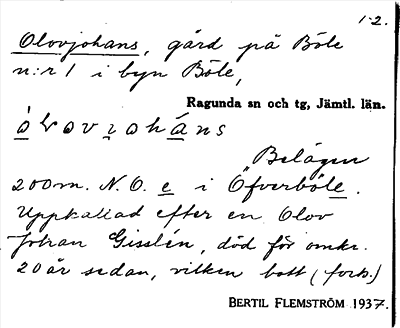 1-2.
Olovjohans, gård på Böle
n:r 1 i byn Böle,
Ragunda sn och tg, Jämtl. län.
Belägen
200 m. N.O. e i "Öfverböle.
Uppkallad efter en Olov
Johan Gisslén, död för omkr.
20 år sedan, vilken bott (forts.)
BERTIL FLEMSTRÖM 1937.